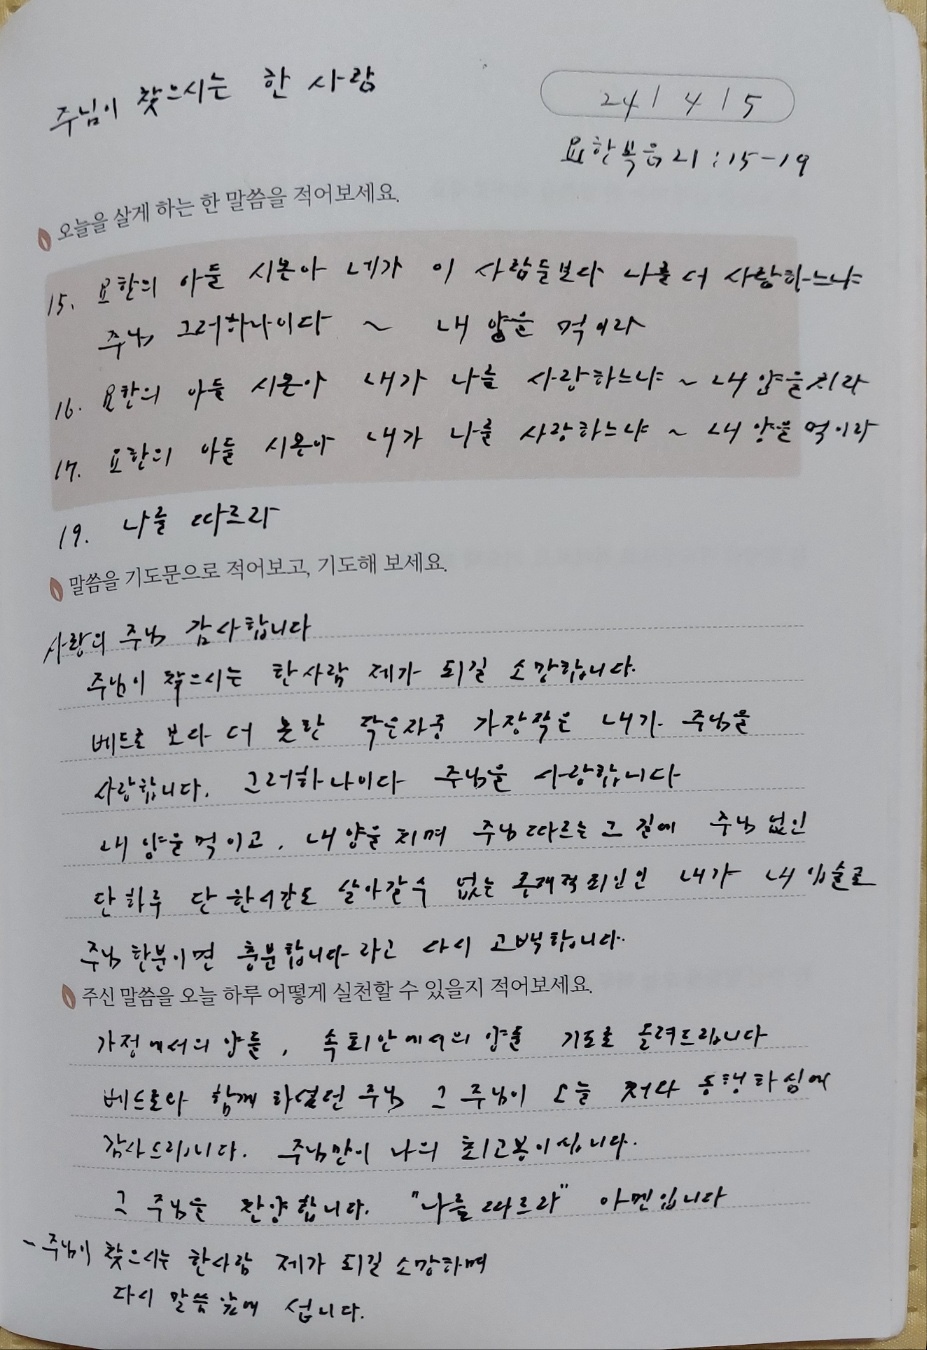 주님이 찾으시는 한 사람
24 / 4 / 5
요한복음 21:15-19
오늘을 살게 하는 한 말씀을 적어보세요.
15. 요한의 아들 시몬아 네가 이 사람들보다 나를 더 사랑하느냐
주님 그러하나이다 ~ 내 양을 먹이라
16. 요한의 아들 시몬아 네가 나를 사랑하느냐 ~ 내 양을 치라
17. 요한의 아들 시몬아 네가 나를 사랑하느냐 ~ 내 양을 먹이라
19. 나를 따르라
말씀을 기도문으로 적어보고, 기도해 보세요.
사랑의 주님 감사합니다
주님이 찾으시는 한사람 제가 되길 소망합니다.
베드로 보다 더 못한 작은자중 가장작은 내가 주님을
사랑합니다. 그러하나이다 주님을 사랑합니다
내 양을 먹이고, 내양을 치며 주님따르는 그 길에 주님 없인
단 하루 단 한시간도 살아갈수 없는 존재적죄인인 내가 내 입술로
주님 한분이면 충분합니다 라고 다시 고백합니다.
주신 말씀을 오늘 하루 어떻게 실천할 수 있을지 적어보세요.
가정에서의 양들, 속회안에서의 양을 기도로 올려드립니다
베드로와 함께 하셨던 주님 그 주님이 오늘 저와 동행하심에
감사드립니다. 주님만이 나의 최고봉이십니다.
그 주님을 찬양합니다. "나를따르라" 아멘입니다
- 주님이 찾으시는 한사람 제가 되길 소망하며
다시 말씀 앞에 섭니다.